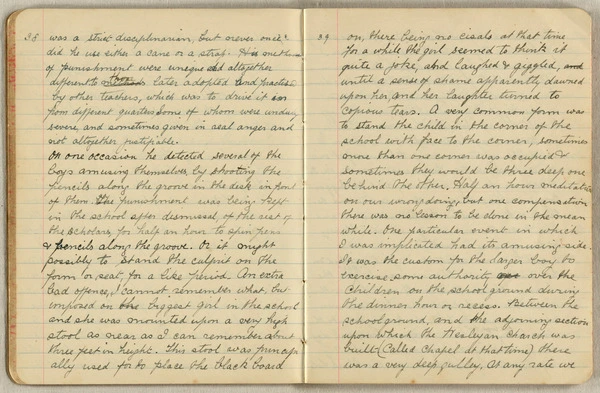 38 was a strict disciplinarian, but never once
did he use either a cane or a strap. His methods
of punishment were unique and altogether
different to those later adopted and practised
by other teachers, which was to drive it in
from different quarters some of whom were unduly
severe, and sometimes given in real anger and
not altogether justifiable.
On one occasion he detected several of the
boys amusing themselves by shooting the
pencils along the groove in the desk in front
of them. The punishment was being kept
in the school after dismissal of the rest of
the scholars, for half an hour to spin pens
& pencils along the groove. Or it might
possibly to stand the culprit on the
form or seat, for a like period. An extra
bad offence, I cannot remember what, but
imposed on the biggest girl in the school
and she was mounted upon a very high
stool as near as I can remember about
three feet in height. This stool was princip
ally used for to place the black board
39 on, there being no easels at that time
for a while the girl seemed to think it
quite a joke, and laughed & giggled, and
until a sense of shame apparently dawned
upon her, and her laughter turned to
copious tears. A very common form was
to stand the child in the corner of the
school with face to the corner, sometimes
more than one corner was occupied &
sometimes they would be three deep one
behind the other. Half an hour meditation
on our wrongdoing, but one compensation
there was no lesson to be done in the mean
while. One particular event in which
I was implicated had its amusing side.
It was the custom for the larger boys to
exercise some authority over the
children on the school ground during
the dinner hour or recess. Between the
school ground, and the adjoining section
upon which the Wesleyan Church was
built (Called Chapel at that time) there
was a very deep gulley. At any rate we